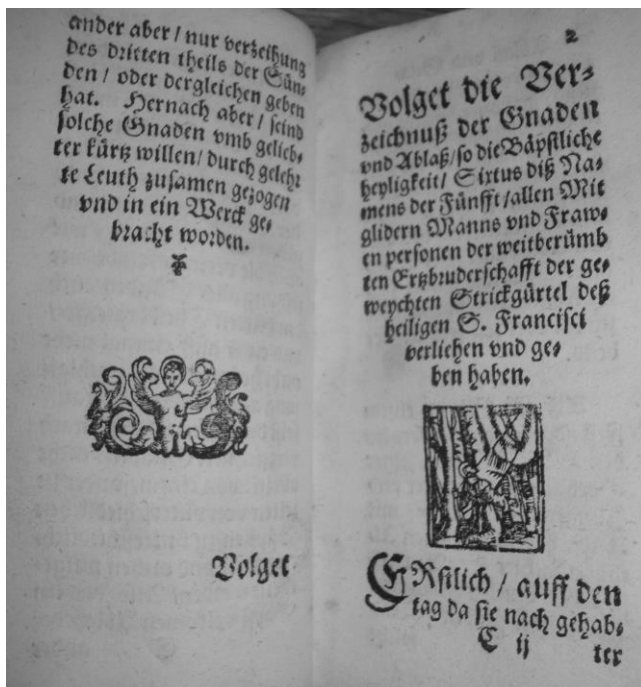 ander aber / nur verzeihung
des dritten theils der Sün⸗
den / oder dergleichen geben
hat. Hernach aber / seind
solche Gnaden vmb gelieb⸗
ter kürtz willen / durch gelehr
te Leuth zusamen gezogen
vnd in ein Werck ge⸗
bracht worden.
Volget
2
Volget die Ver⸗
zeichnuß der Gnaden
vnd Ablaß / so die Bäpstliche
heyligkeit / Sixtus diß Na⸗
mens der Fünfft / allen Mit
glidern Manns vnd Fraw⸗
en personen der weitberümb
ten Ertzbruderschafft der ge⸗
weychten Strickgürtel deß
heiligen S. Francisci
verlichen vnd ge⸗
ben haben.
ERstlich / auff den
tag da sie nach gehab⸗
C ij ter